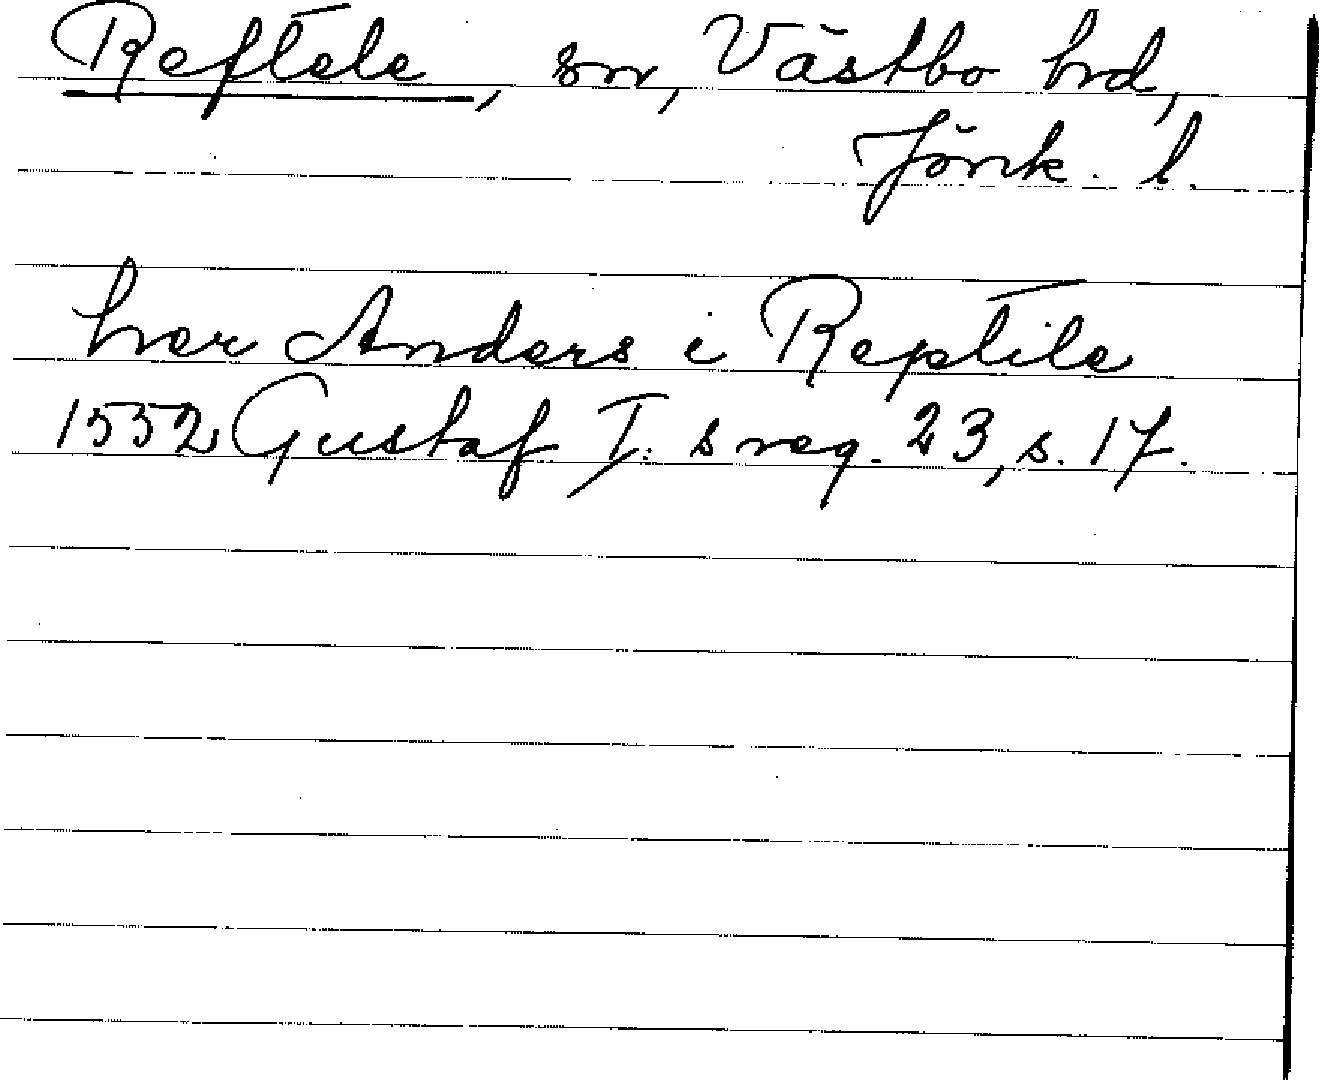 Reftele, sn, Västbo hrd,
Jönk. l.
her Anders i Reptile
1552 Gustaf I:s reg. 23, s. 17.